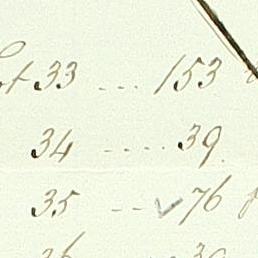 33 ... 153
34 ..... 39.
35 ... ✓ 76